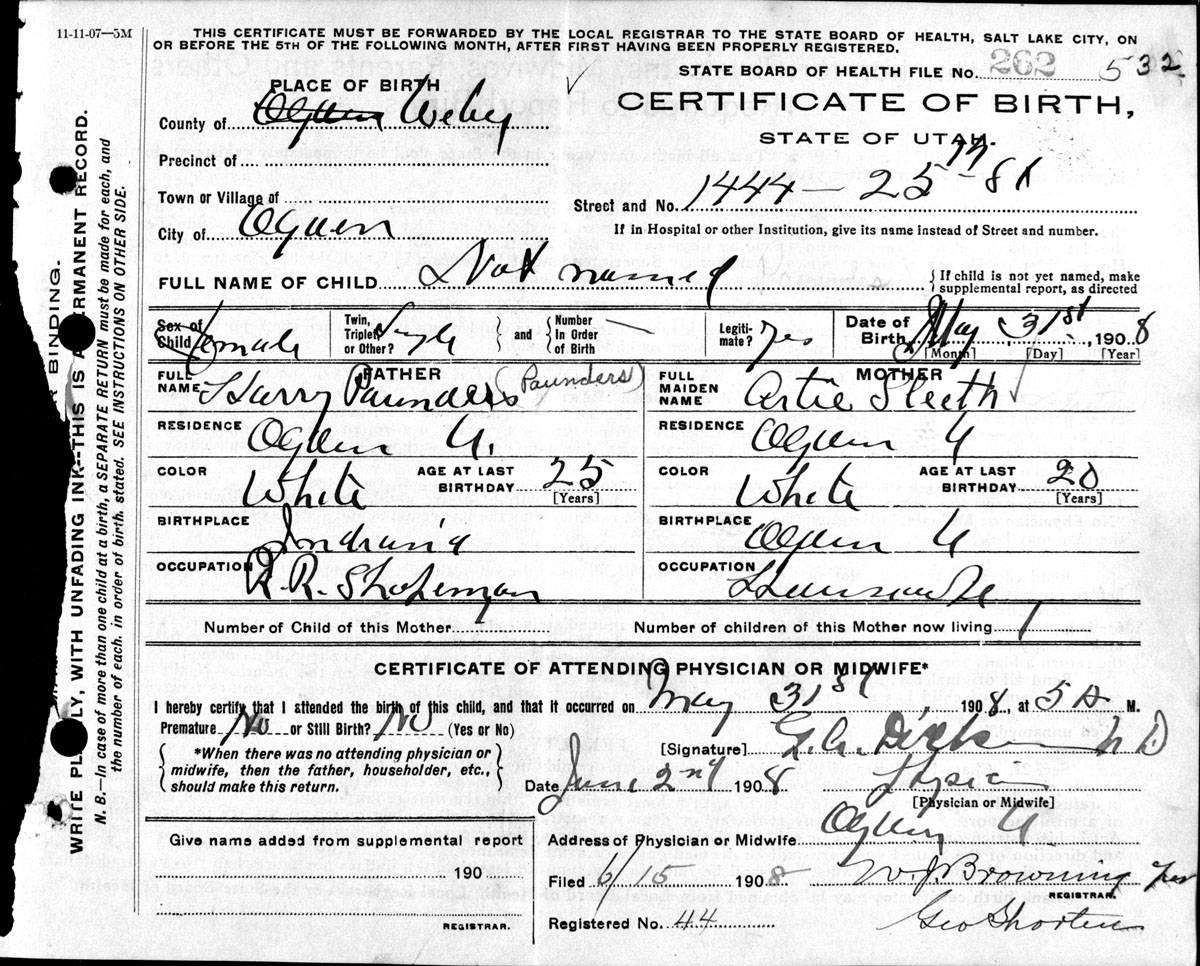 11-11-07—5M
THIS CERTIFICATE MUST BE FORWARDED BY THE LOCAL REGISTRAR TO THE STATE BOARD OF HEALTH, SALT LAKE CITY, ON
OR BEFORE THE 5TH OF THE FOLLOWING MONTH, AFTER FIRST HAVING BEEN PROPERLY REGISTERED.
STATE BOARD OF HEALTH FILE No. 262 532
PLACE OF BIRTH
CERTIFICATE OF BIRTH,
STATE OF UTAH.
County of Ogden Weber
Precinct of
Town or Village of
Street and No. 1444 — 25 St
City of Ogden
If in Hospital or other Institution, give its name instead of Street and number.
FULL NAME OF CHILD Not named
{If child is not yet named, make
supplemental report, as directed
Sex of Child Female
Twin, Triplet or Other? Single
{and} {Number In Order of Birth —
Legiti-mate? yes
Date of Birth May 31st, 1908
[Month] [Day] [Year]
FATHER
FULL NAME Harry Paunders (Paunders)
MOTHER
FULL MAIDEN NAME Artie Sleeth
RESIDENCE Ogden U.
RESIDENCE Ogden U
COLOR White AGE AT LAST BIRTHDAY 25 [Years]
COLOR White AGE AT LAST BIRTHDAY 20 [Years]
BIRTHPLACE Indiana
BIRTHPLACE Ogden U
OCCUPATION R.R. Shopman
OCCUPATION Housewife
Number of Child of this Mother
Number of children of this Mother now living 1
CERTIFICATE OF ATTENDING PHYSICIAN OR MIDWIFE*
I hereby certify that I attended the birth of this child, and that it occurred on May 31st, 1908, at 5 A M.
Premature? No or Still Birth? No (Yes or No)
{*When there was no attending physician or
midwife, then the father, householder, etc.,
should make this return.}
[Signature] M D
Date June 2nd 1908
[Physician or Midwife]
Address of Physician or Midwife Ogden U.
Give name added from supplemental report
190
REGISTRAR.
Filed 6/15 1908 W. J. Browning
REGISTRAR.
Registered No. 44
Geo Shorten
BINDING.
WRITE PLAINLY, WITH UNFADING INK--THIS IS A PERMANENT RECORD.
N. B.—In case of more than one child at a birth, a SEPARATE RETURN must be made for each, and
the number of each, in order of birth, stated. SEE INSTRUCTIONS ON OTHER SIDE.